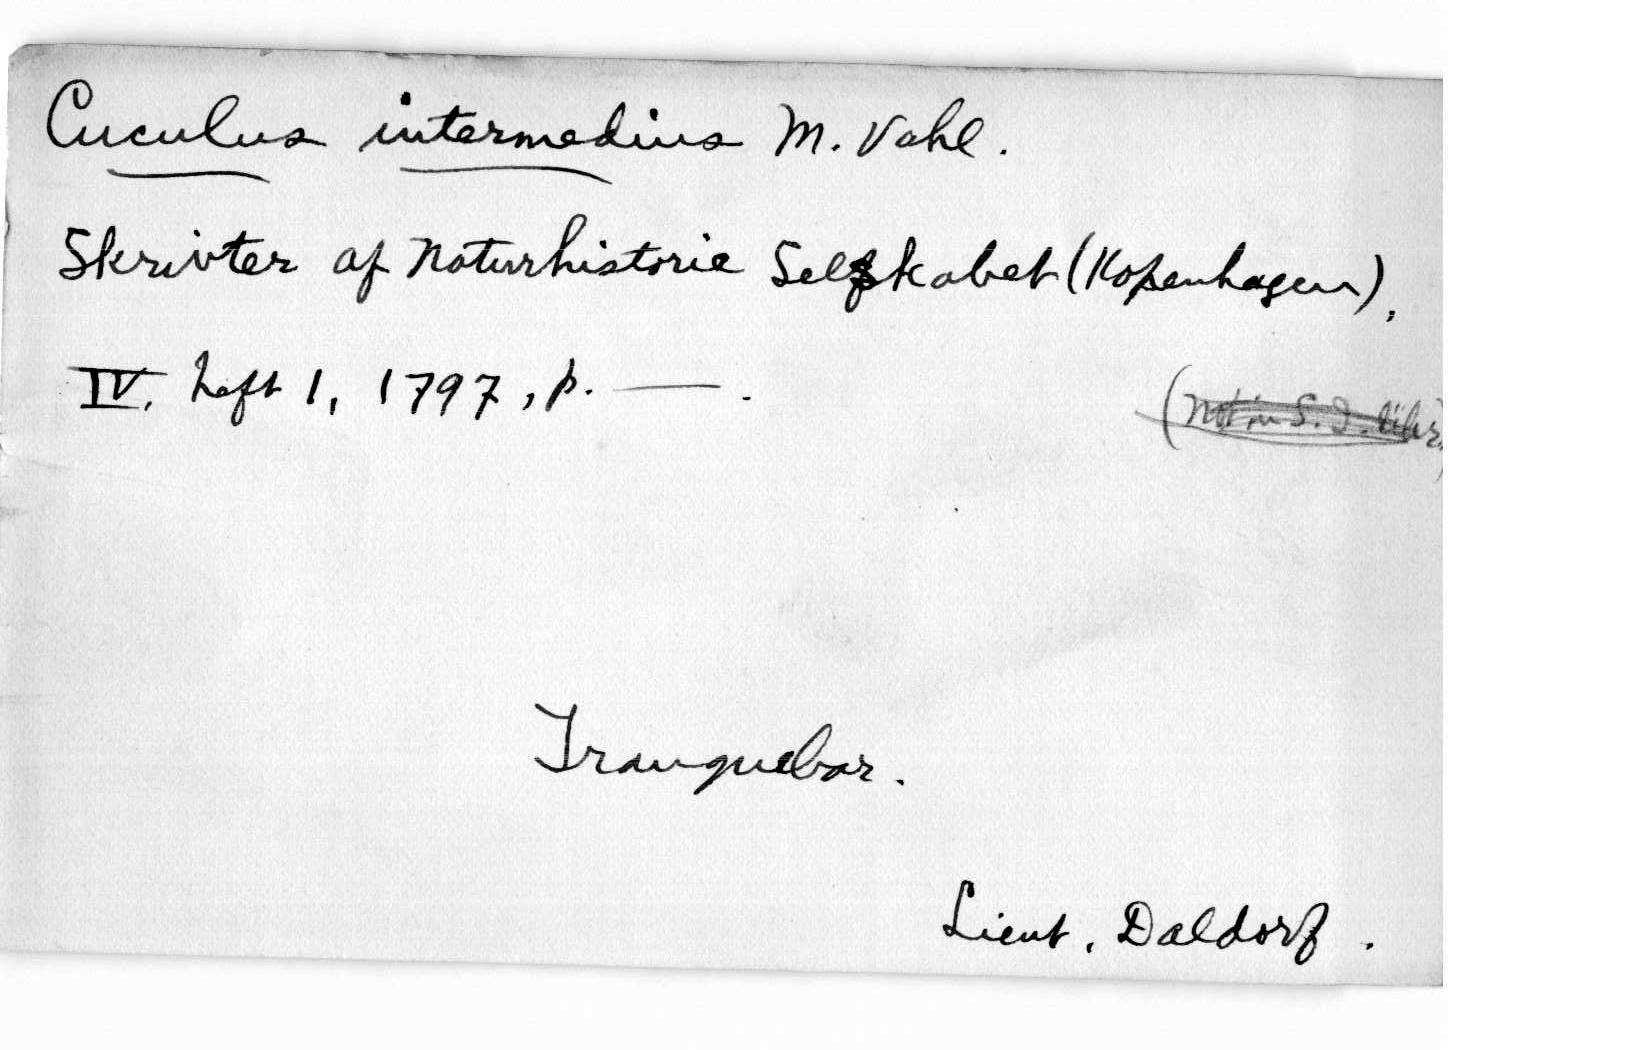 Cuculus intermedius M. Vahl.
Skrivter af Naturhistorie Selskabet (Kopenhagen),
IV, heft 1, 1797, p. —.
(Not in S. I. libr.)
Tranquebar.
Lieut. Daldorf.